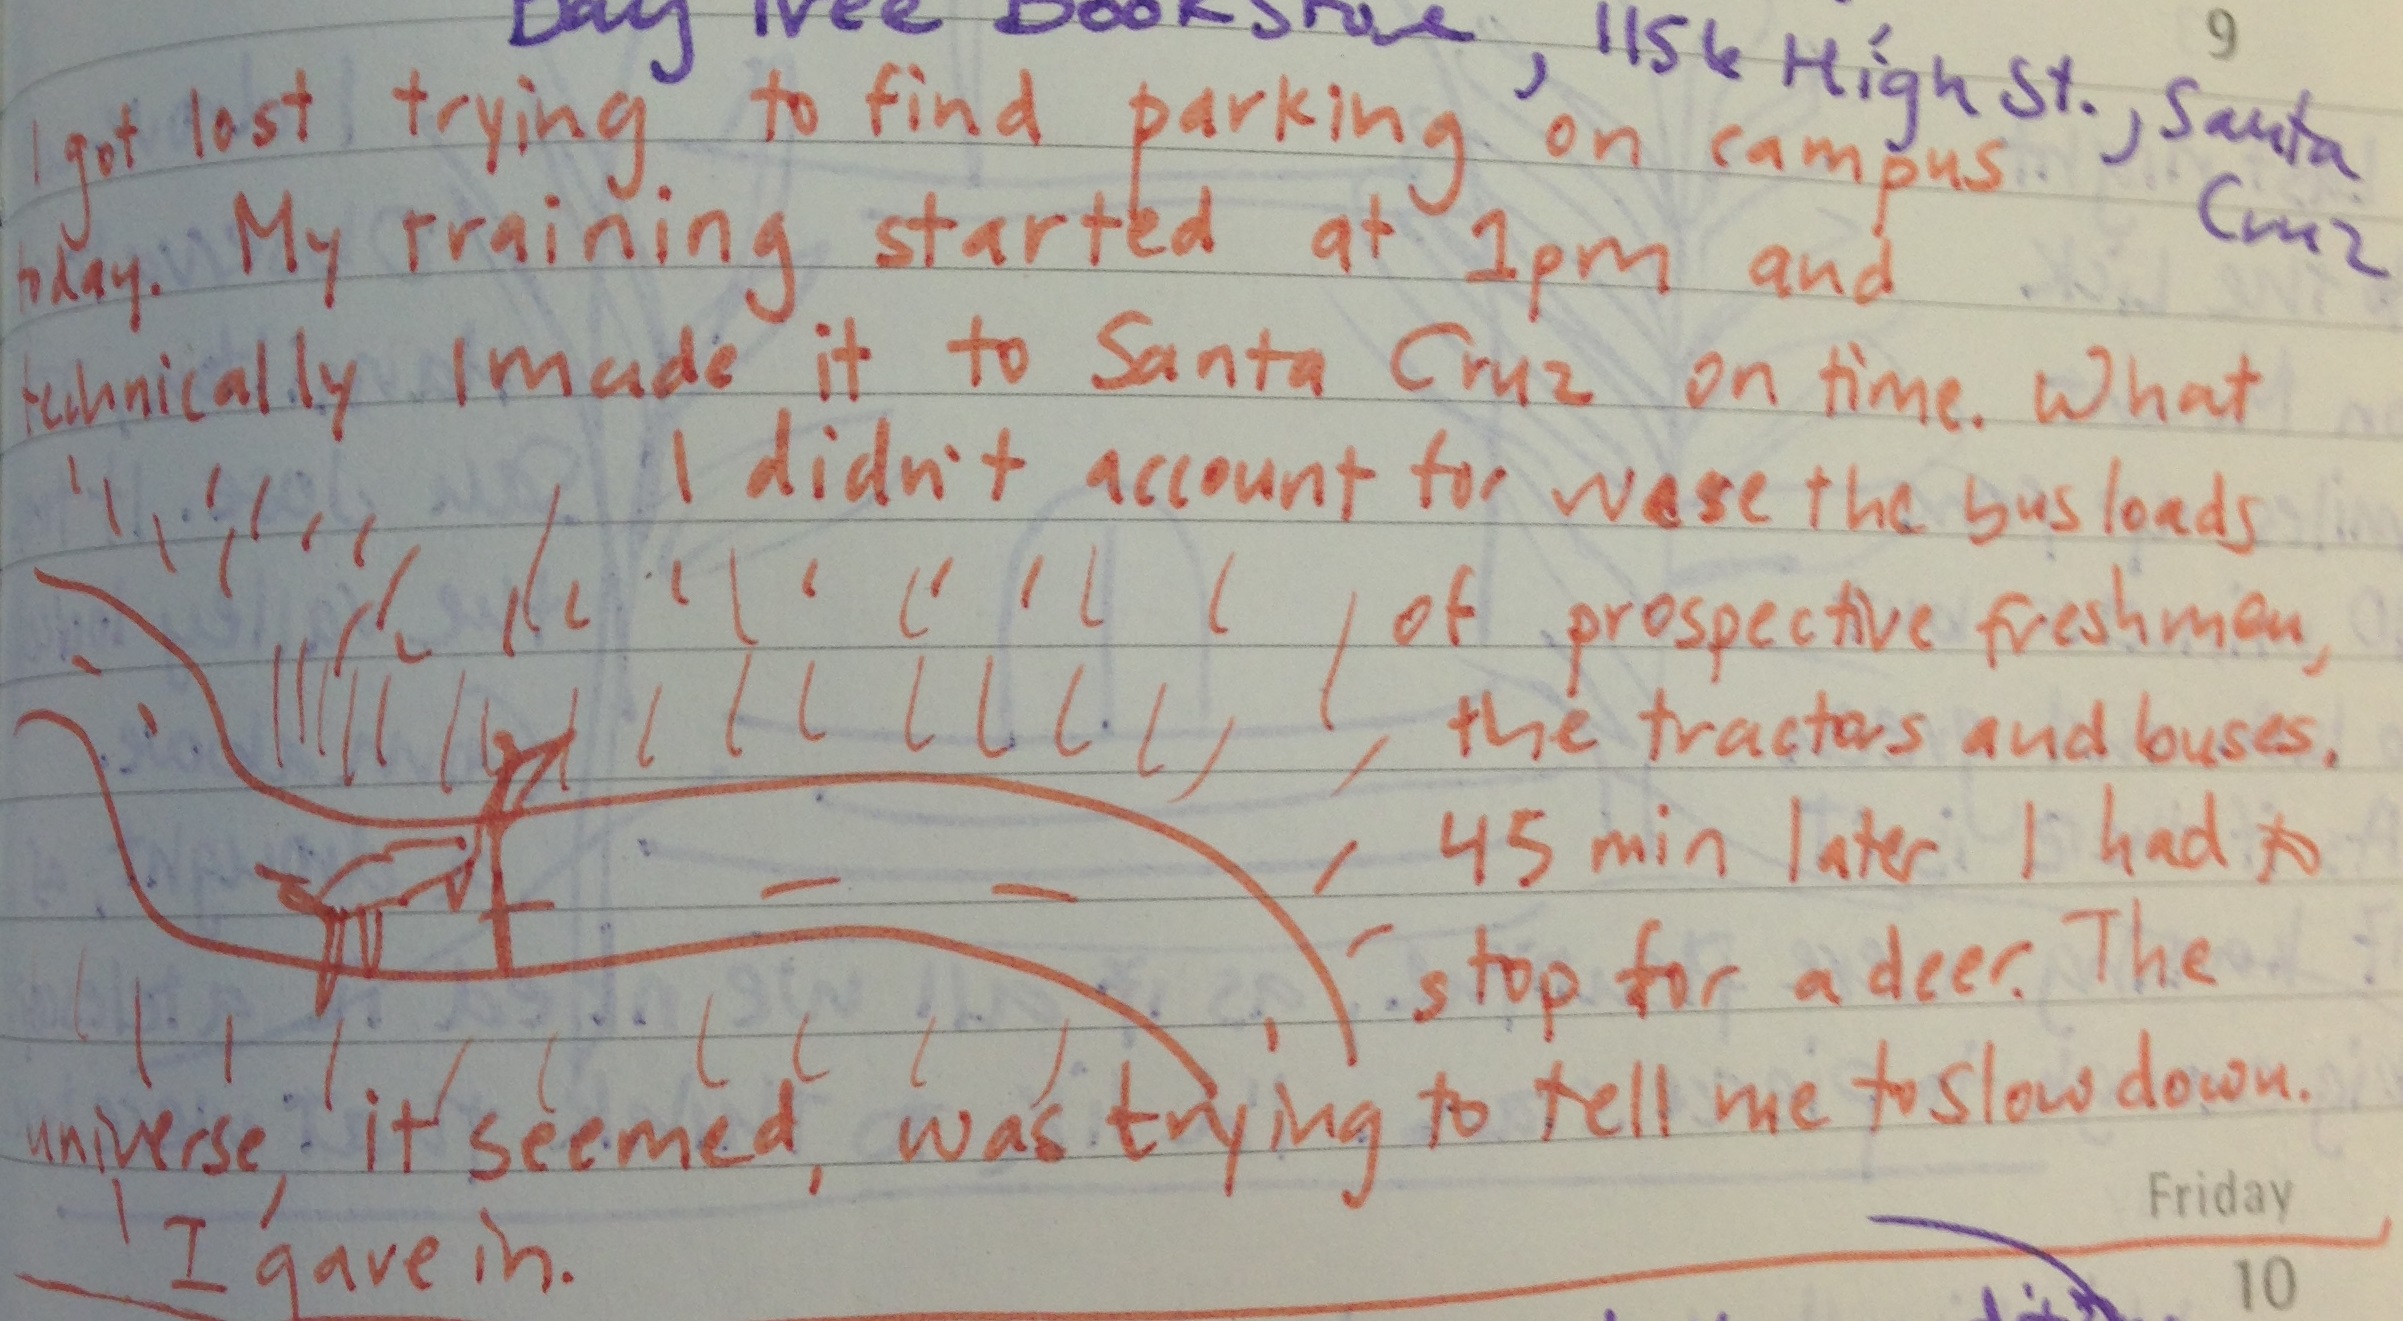 Bay Tree Bookstore, 1156 High St., Santa Cruz
9
I got lost trying to find parking on campus
today. My training started at 1pm and
technically I made it to Santa Cruz on time. What
I didn't account for were the bus loads
of prospective freshmen,
the tractors and buses.
45 min later I had to
stop for a deer. The
universe, it seemed, was trying to tell me to slow down.
I gave in.
Friday
10